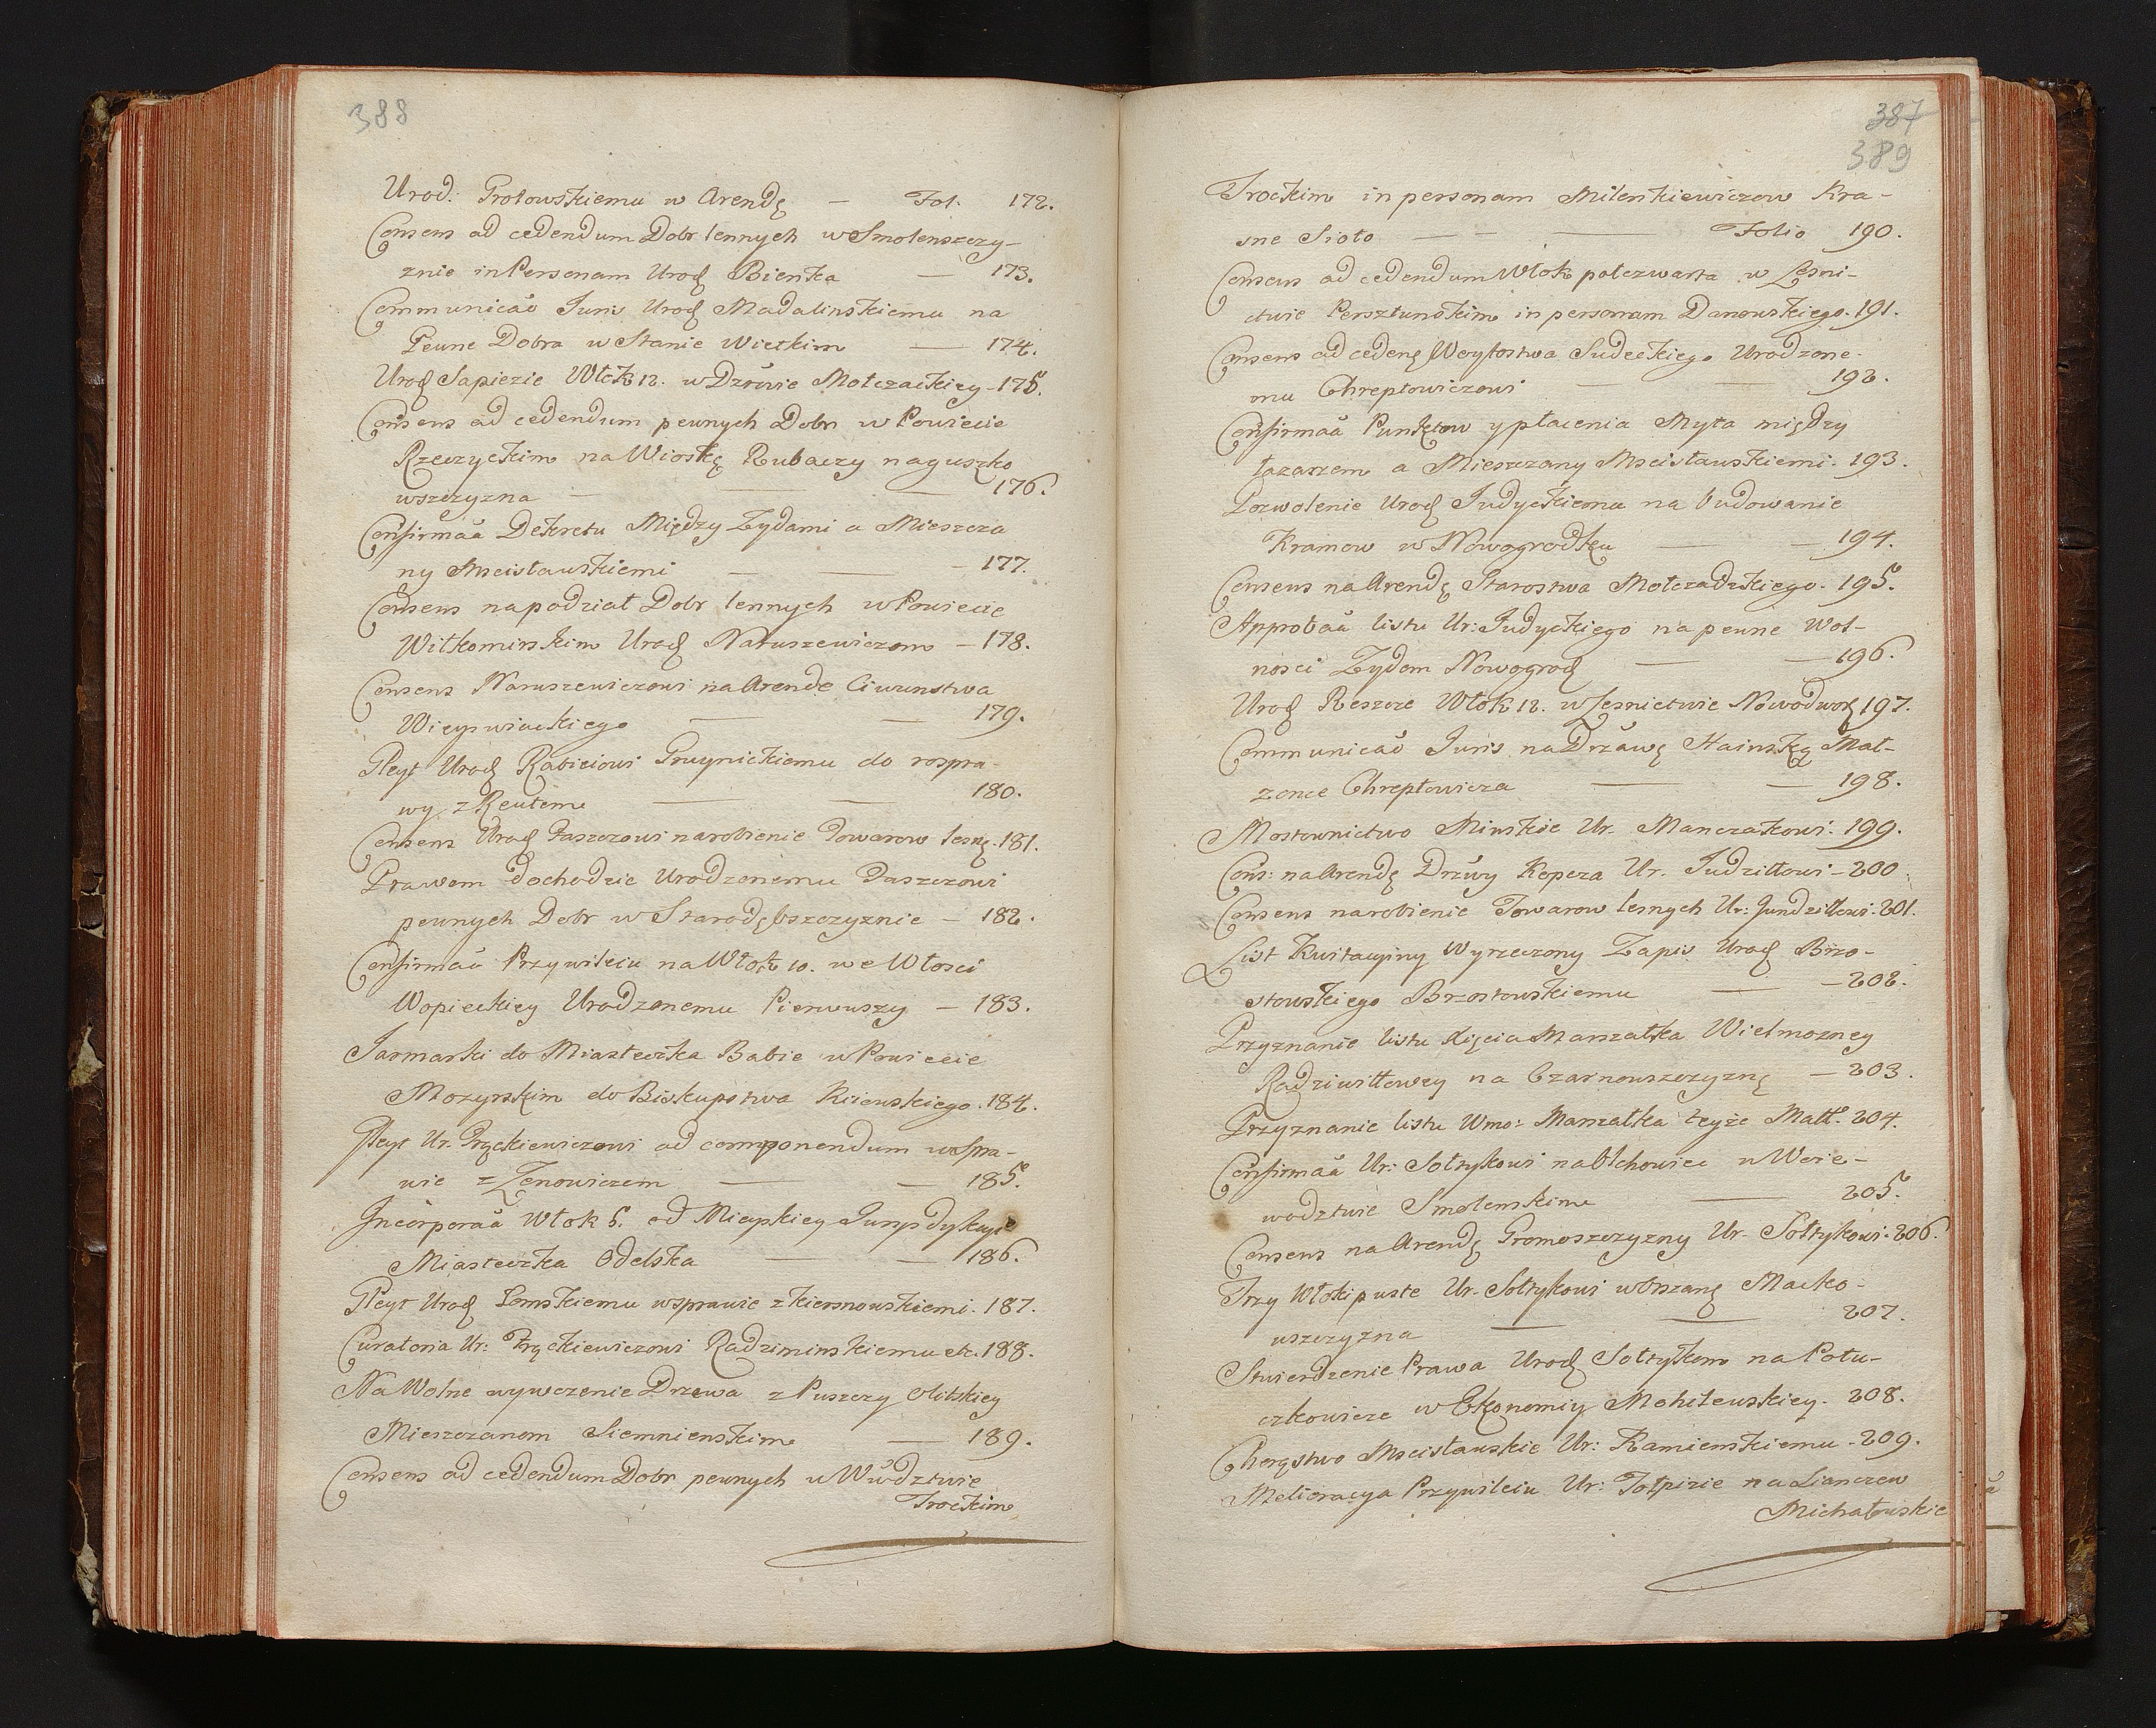 388
Urod: Grotowskiemu w Arendę — Fol. 172.
Consens ad cedendum Dobr lennych w Smolenszczy-
znie in Personam Urod Bienka — 173.
Communicao Juris Urod Madalinskiemu na
Pewne Dobra w Stanie Wielkim — 174.
Urod Sapiezie Włok 12. w Dzrwie Mołczackiey - 175.
Consens ad cedendum pewnych Dobr w Powiecie
Rzeczyckim na Wioskę Rubaczy naguszko
wszczyzna — 176.
Confirmaa Dekretu Między Zydami a Mieszcza
ny Mscisławskiemi — — 177.
Consens na podział Dobr lennych w Powiecie
Wiłkomirskim Urod Naruszewiczom — 178.
Consens Naruszewiczowi na Arende Ciwunstwa
— — 179.
Gleyt Urod Rabieiowi Gruynickiemu do rospra-
wy z Reutem — — 180.
Consens Urod Paszczowi na robienie Towarow lesnę. 181.
Prawem dochodzic Urodzonemu Paszczowi
pewnych Dobr w Starodębszczyznie — 182.
Confirmao Przywileiu na Włok 10. we Włosci
Wopieckiey Urodzonemu Pierwuszy — 183.
Jarmarki do Miasteczka Babie w Powiecie
Mozyrskim do Biskupstwa Kiiowskiego. 184.
Gleyt Ur. Przeckiewiczowi ad componendum w Spra-
wie z Zenowiczem — — 185.
Incorporaa Włok 6. od Mieyskiey Jurysdykcyi
Miasteczka Odelska — — 186.
Gleyt Urod Lomskiemu w sprawie z Kiersnowskiemi. 187.
Curatoria Ur: Przeckiewiczowi Radziminskiemu etc. 188.
Na Wolne wywozenie Drzewa z Puszczy Olitskiey
Mieszczanom Siemnienskim — 189.
Consens ad cedendum Dobr pewnych w Wwdztwie
Trockim
387
389
Trockim in personam Milenkiewiczow Kra-
sne Sioło — — — Folio 190.
Consens ad cedendum Włok połczwarta w Lesni-
ctwie Persztunskim in personam Danowskiego. 191.
Consens ad cedenę Woytostwa Sudeckiego Urodzone-
mu Chreptowiczowi — — 192.
Confirmaa Punktow y płacenia Myta między
łazarzem a Mieszczany Mscisławskiemi. 193.
Pozwolenie Urod Judyckiemu na budowanie
Kramow w Nowogrodku — — 194.
Consens na Arendę Starostwa Mołczadzkiego. 195.
Approbaa listu Ur: Judyckiego na pewne Wol-
nosci Zydom Nowogrod — — 196.
Urod Reszce Włok 12. w Lesnictwie Nowodwor 197.
Communicao Juris na Drzawę Hainską Mał-
zonce Chreptowicza — — 198.
Mostownictwo Minskie Ur. Manczakowi. 199.
Cons: na Arendę Drzwy Kopcza Ur. Judziłłowi - 200.
Consens na robienie Towarow lesnych Ur: Gundziłłowi. 201.
List Kwitacyiny Wyrzeczony Zapis Urod Brzo-
stowskiego Brzostowskiemu — — 202.
Przyznanie listu Xięcia Marszałka Wielmozney
Radziwiłłowey na Czarnouszczyznę — 203.
Przyznanie listu Wmo: Marszałka teyże Małł. 204.
Confirmaa Ur: Sołtykowi na Olchowiec w Woie-
wodztwie Smolenskim — 205.
Consens na Arendę Gromoszczyzny Ur. Sołtykowi. 206.
Trzy Włoki puste Ur. Sołtykowi w Orszanę Macko-
wszczyzna — — 207.
Stwierdzenie Prawa Urod Sołtykom na Połu-
czkowicze w Ekonomiy Mohilewskiey. 208.
Chorąstwo Mscisławskie Ur: Kamienskiemu. 209.
Melioracya Przywileiu Ur: Tołpizie na Lianczew
Michałowskie